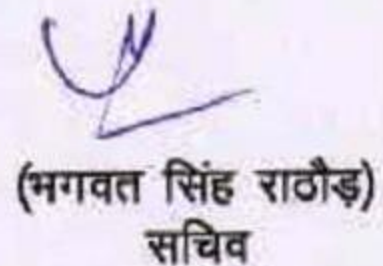 (भगवत सिंह राठौड़)
सचिव